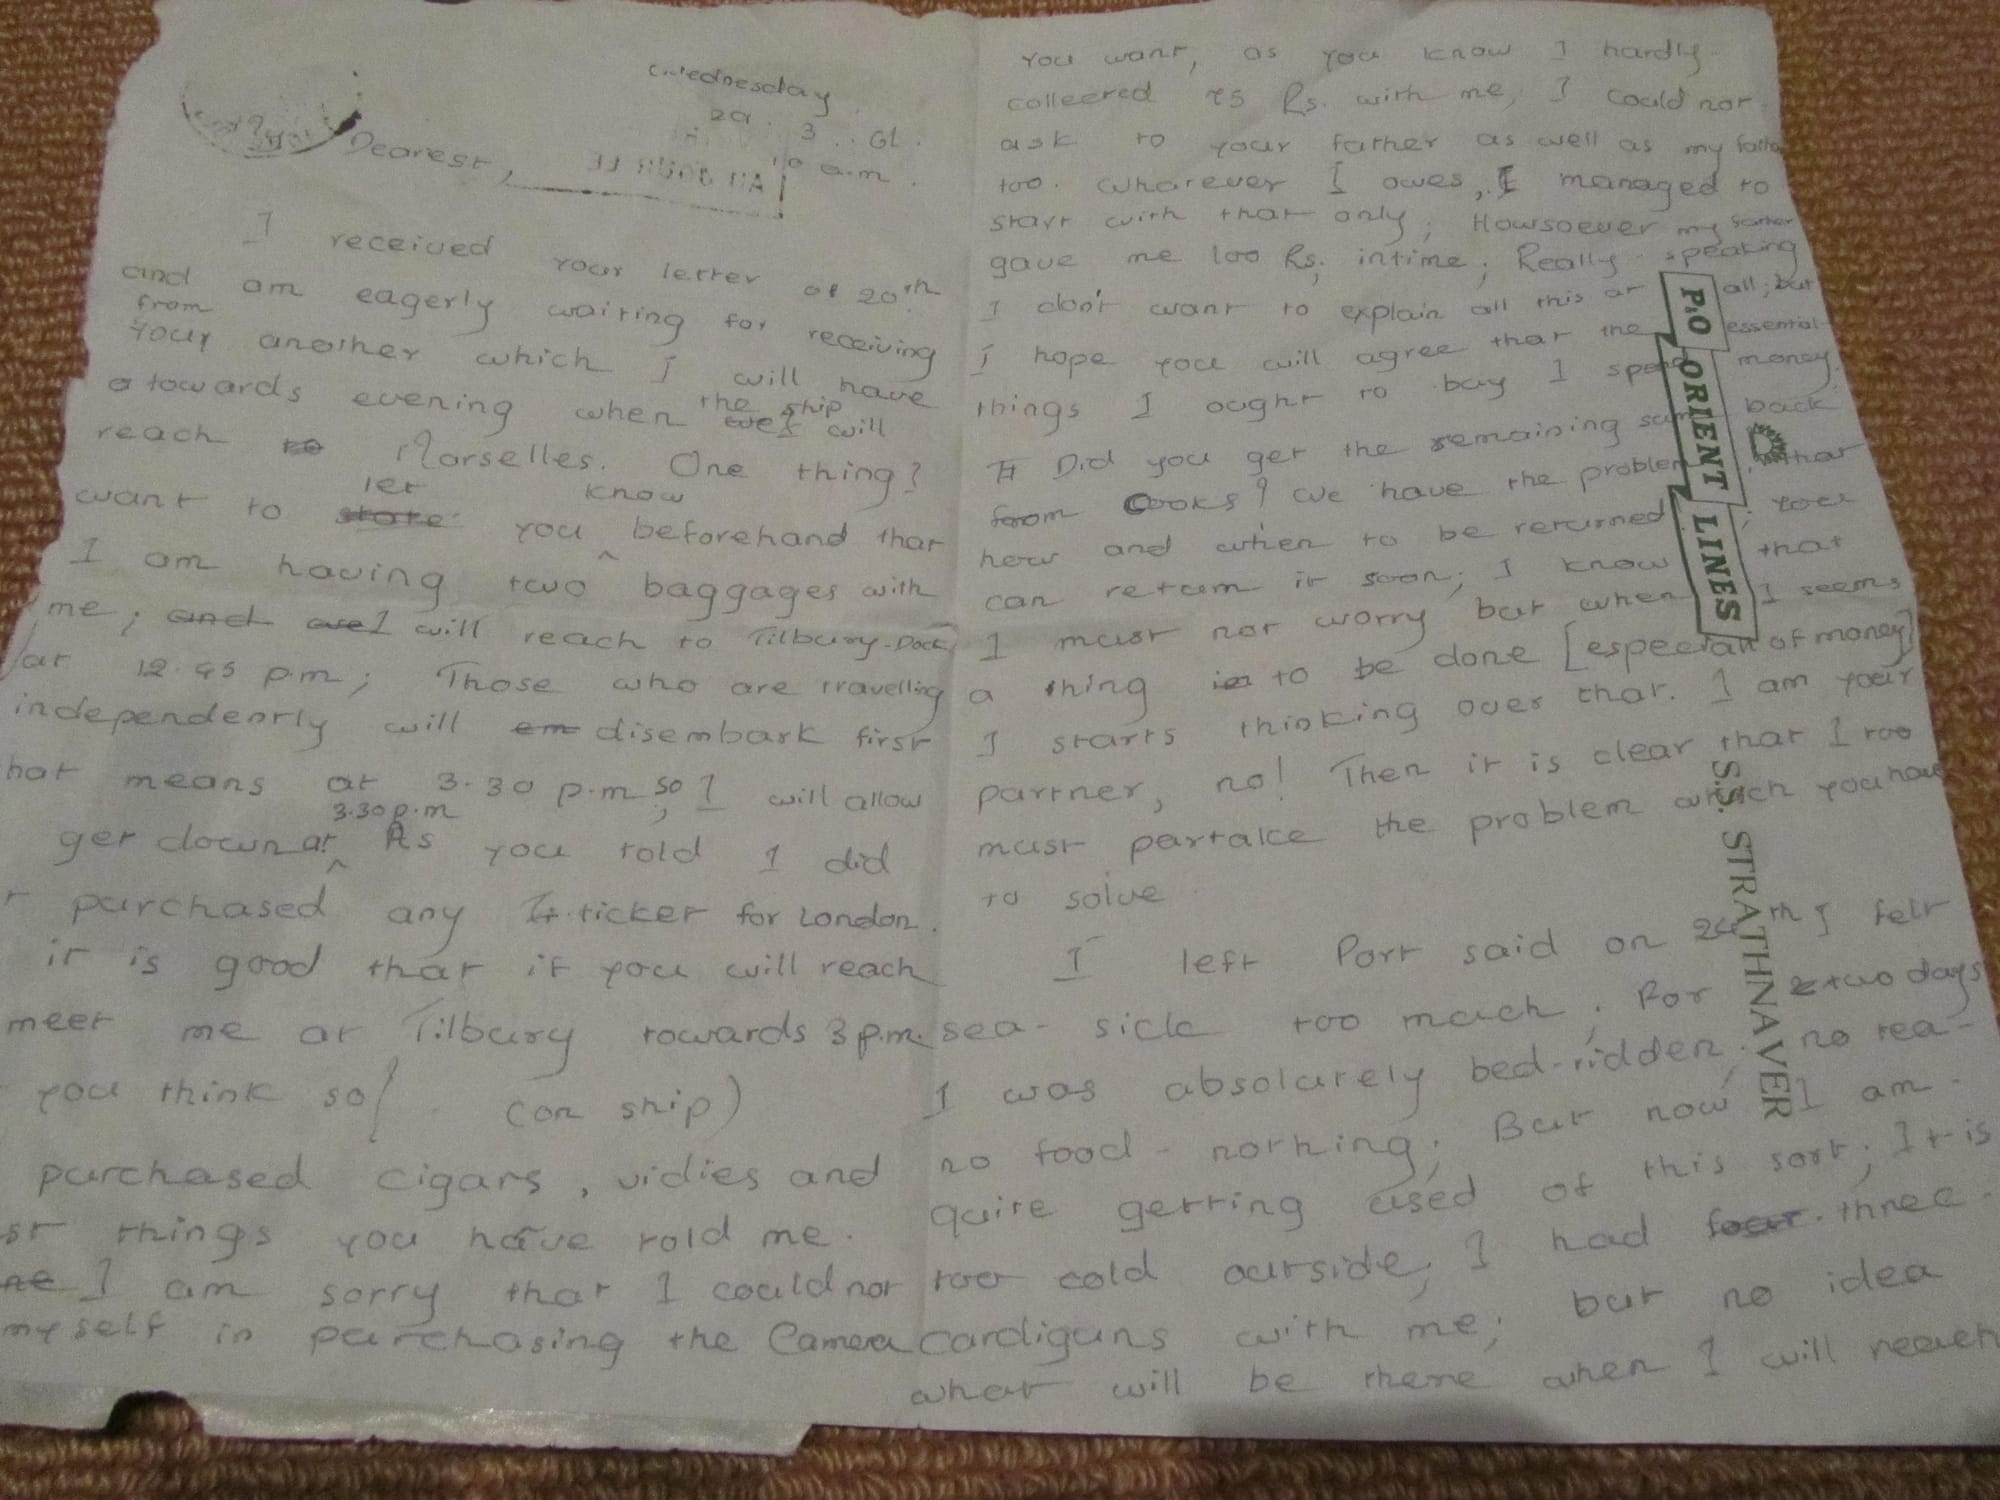 Wednesday
29. 3. 61.
10 a.m.
Dearest,
I received your letter of 20th
and am eagerly waiting for receiving
from
your another which I will have
towards evening when the ship will
reach to Marselles. One thing?
want to let you know beforehand that
I am having two baggages with
me; and we I will reach to Tilbury-Dock
at 12.45 p.m; Those who are travelling
independently will em disembark first
hat means at 3.30 p.m; so I will allow
get down at 3.30 p.m As you told I did
t purchased any ticket for London.
it is good that if you will reach
meet me at Tilbury towards 3 p.m.
you think so! (on ship)
purchased cigars, vidies and
st things you have told me.
ne I am sorry that I could not
myself in purchasing the Camera
you want, as you know I hardly
colleered 75 Rs. with me, I could not
ask to your father as well as my father
too. Whatever I owes, I managed to
start with that only; Howsoever my father
gave me 100 Rs. intime; Really speaking
I don't want to explain all this at all; but
I hope you will agree that the essential
things I ought to buy I spent money.
Did you get the remaining sum back
from Cooks? We have the problem that
how and when to be returned; you
can return it soon; I know that
I must not worry but when I seems
a thing to be done [especiall of money]
I starts thinking over that. I am your
partner, no! Then it is clear that I too
must partake the problem which you have
to solve.
I left Port said on 24th I felt
sea-sick too much; For two days
I was absolutely bed-ridden; no tea-
no food - nothing; But now I am
quite getting used of this sort; It is
too cold outside; I had four three
cardigans with me; but no idea
what will be there when I will reach
P&O ORIENT LINES
S.S. STRATHNAVER